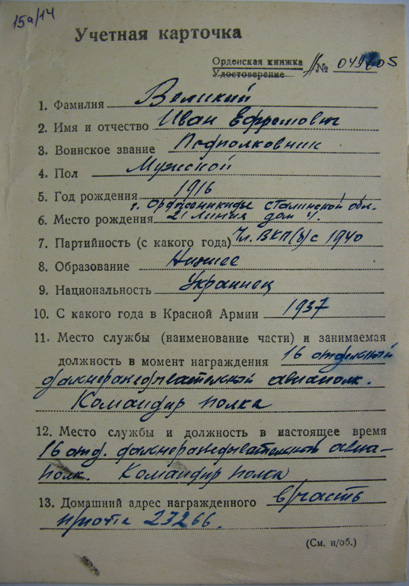 15а/14
Учетная карточка
Орденская книжка
Удостоверение № 049605
1. Фамилия Великий
2. Имя и отчество Иван Ефремович
3. Воинское звание Подполковник
4. Пол Мужской
5. Год рождения 1916
г. Орджоникидзе Сталинской обл.
6. Место рождения 21 линия дом 4.
7. Партийность (с какого года) Чл. ВКП(б) с 1940
8. Образование Низшее
9. Национальность Украинец
10. С какого года в Красной Армии 1937
11. Место службы (наименование части) и занимаемая
должность в момент награждения 16 отдельный
дальнеразведывательный авиаполк.
Командир полка
12. Место службы и должность в настоящее время
16 отд. дальнеразведывательный авиа-
полк. Командир полка
13. Домашний адрес награжденного в/часть
почта 27266.
(См. н/об.)